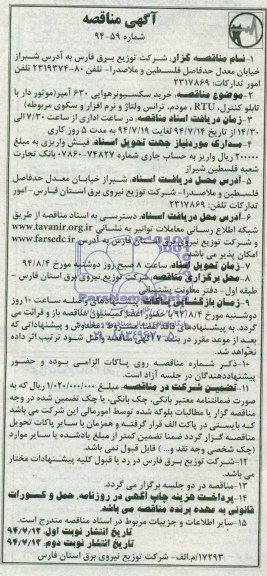 آگهی مناقصه
شماره ۵۹-۹۴
۱- نام مناقصه گزار، شرکت توزیع برق فارس به آدرس شیراز
خیابان معدل حدفاصل فلسطین و ملاصدرا- تلفن ۸۰-۲۳۱۹۳۷۴ تلفن
امور تدارکات: ۲۳۱۷۸۶۹
۲- موضوع مناقصه، خرید سکسیونرهوایی ۶۳۰ آمپر(موتور دار با
تابلو کنترل، RTU ، مودم، ترانس ولتاژ و نرم افزار و سکوی مربوطه)
۳- زمان دریافت اسناد مناقصه، در ساعت اداری از ساعت ۷/۳۰ الی
۱۴/۳۰ از تاریخ ۹۴/۷/۱۴ لغایت ۹۴/۷/۱۹ به مدت ۵ روز کاری
۴- مدارک موردنیاز جهت تحویل اسناد، فیش واریزی به مبلغ
۲۰۰۰۰۰ ریال واریز به حساب جاری شماره ۰۷۸۶۰۰۷۴۸۲۷ بانک تجارت
شعبه فلسطین شیراز
۵- آدرس محل دریافت اسناد، شیراز خیابان معدل حدفاصل
فلسطین و ملاصدرا- شرکت توزیع نیروی برق استان فارس- امور
تدارکات تلفن: ۲۳۱۷۸۶۹
۶- آدرس محل دریافت اسناد، دسترسی به اسناد مناقصه از طریق
شبکه اطلاع رسانی معاملات توانیر به نشانی www.tavanir.org.ir
و شرکت توزیع نیروی برق استان فارس به آدرس www.farsedc.ir
امکان پذیر می باشد.
۷- زمان تحویل اسناد، ساعت ۸ صبح روز دوشنبه مورخ ۹۴/۸/۴
۸- محل برگزاری مناقصه، شرکت توزیع نیروی برق استان فارس -
طبقه اول- دفتر معاونت پشتیبانی
۹- زمان بازگشایی پاکات، پیشنهادهای واصله ساعت ۱۰ روز
دوشنبه مورخ ۹۴/۸/۴ با حضور اعضا کمیسیون مناقصه باز و قرائت می
گردد. به پیشنهادهای فاقد امضا، مشروط، مخدوش و پیشنهاداتی که
بعد از موعد مقرر در بند ۷ مناقصه واصل شود ترتیب اثر داده
نخواهد شد.
۱۰- ذکر شماره مناقصه روی پاکات الزامی بوده و حضور
پیشنهاددهندگان در جلسه آزاد است.
۱۱- تضمین شرکت در مناقصه، مبلغ ۱/۰۲۰/۰۰۰/۰۰۰ ریال که به
صورت ضمانتنامه معتبر بانکی، چک بانکی، یا چک تضمین شده در وجه
مناقصه گزار یا مطالبات بلوکه شده توسط امورمالی این شرکت می باشد
که بایستی در پاکت الف قرار گرفته و همزمان با سایر پاکات تحویل
مناقصه گزار گردد ضمنا تضمین کمتر از مبلغ یادشده یا سایر موارد
(چک شخصی وجه نقد و...) قابل قبول نمی باشد.
۱۲- شرکت توزیع برق فارس در رد یا قبول کلیه پیشنهادات مختار
می باشد.
۱۳- مناقصه در دو جلسه برگزار می گردد.
۱۴- پرداخت هزینه چاپ آگهی در روزنامه، حمل و کسورات
قانونی به عهده برنده مناقصه می باشد.
۱۵- سایر اطلاعات و جزییات مربوط در اسناد مناقصه مندرج است.
تاریخ انتشار نوبت اول: ۹۴/۷/۱۲
تاریخ انتشار نوبت دوم: ۹۴/۷/۱۳
۱۷۲۹۳/م.الف- شرکت توزیع نیروی برق استان فارس